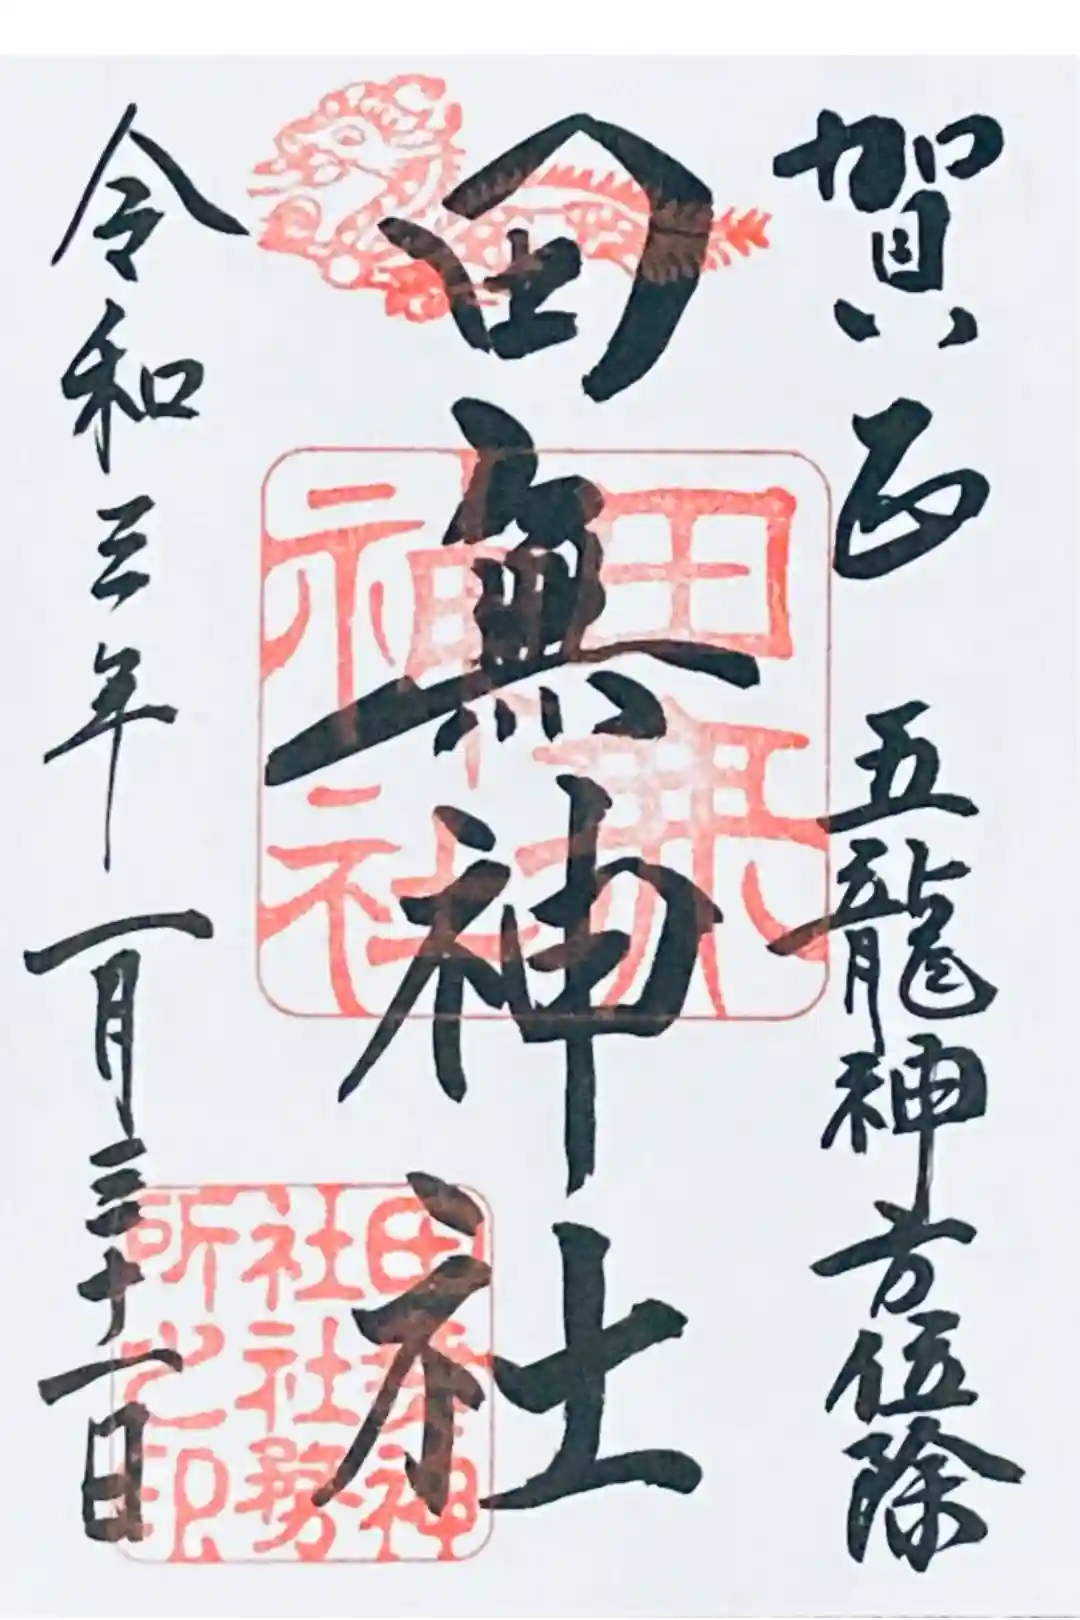 賀正 五龍神方位除
田無神社
令和三年 一月三十一日
田無神社
田無神社社務所之印